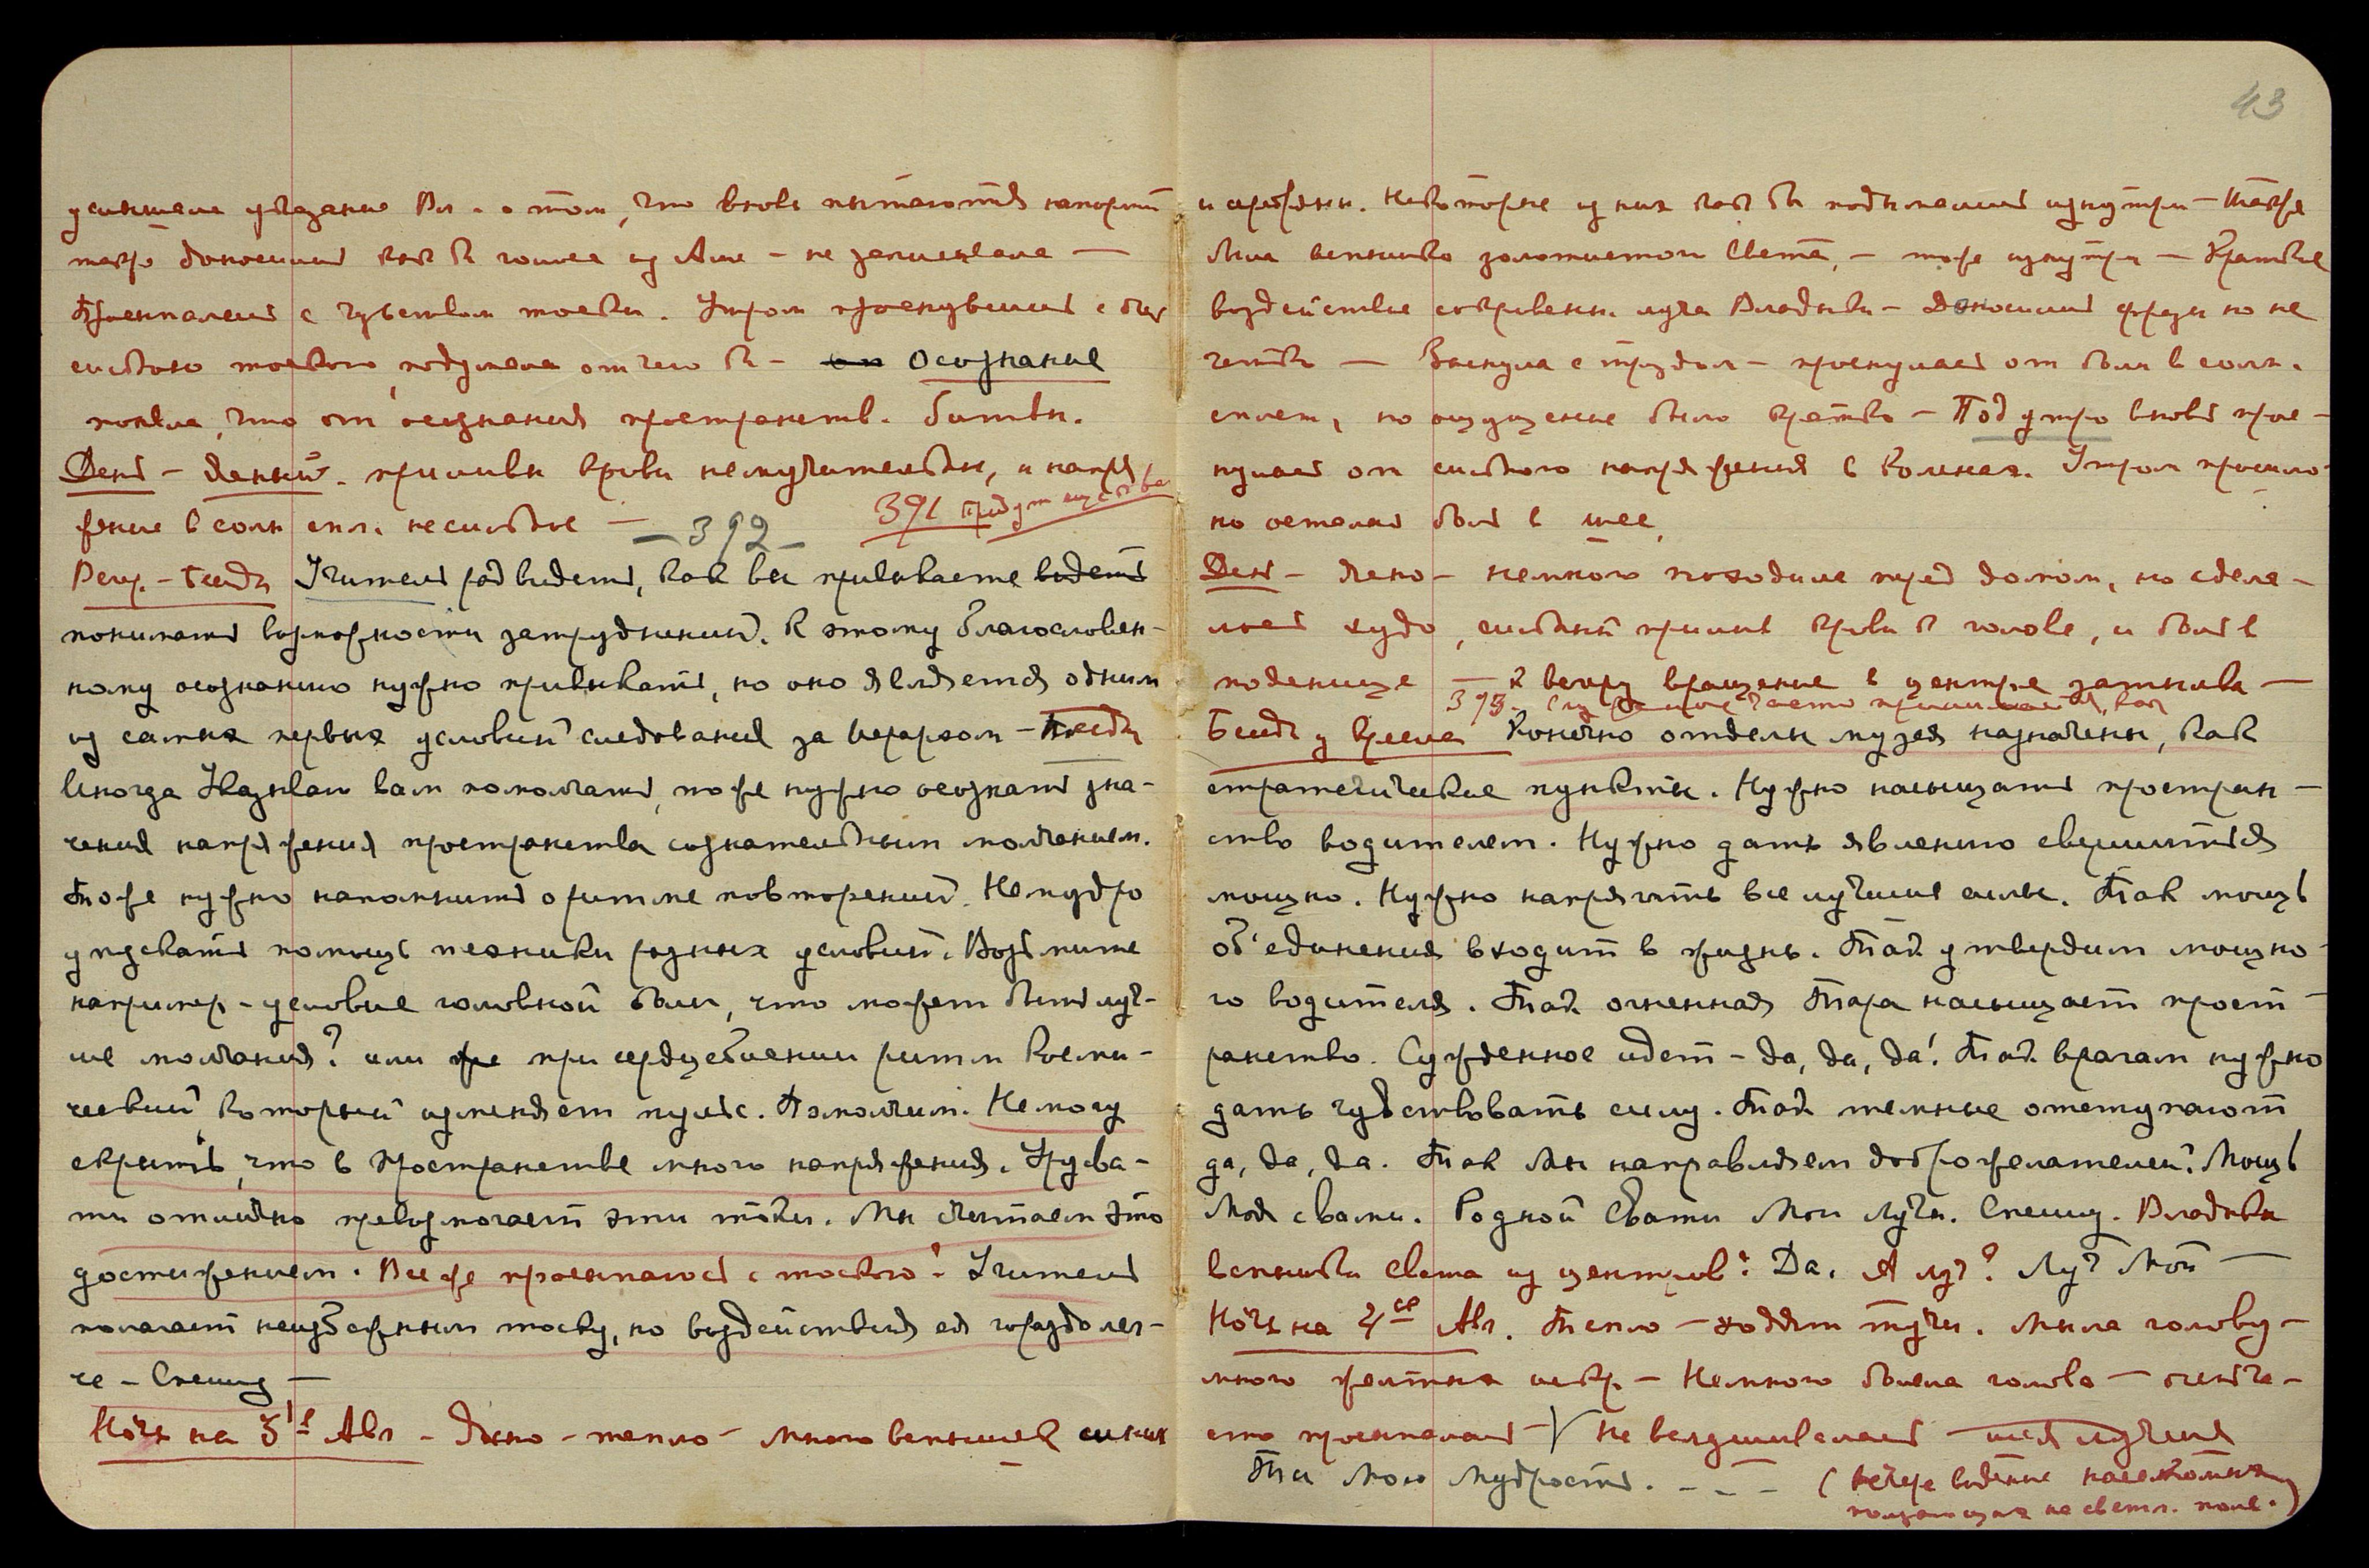 услышала указание Вл. о том, что вновь пытаются
также доносился как бы голоса из Аше – не записывала –
Просыпалась с чувством тоски. Утром проснувшись с
сильною тоскою, подумала отчего бы – Осознание
поняла, что от осознания пространств. битвы.
День – ясный. приливы крови немучительны, и напря
жение в солн. спл. несильное – – 392 – 391 Придут существа
Веч. – Беседа Учитель рад видеть, как вы привыкаете видеть
понимать возможности затруднений. К этому благословен-
ному осознанию нужно привыкать, но оно является одним
из самых первых условий следования за Иерархом –
Иногда Указываю вам помолчать, тоже нужно осознать зна-
чения напряжения пространства сознательным молчанием.
Тоже нужно напомнить о ритме повторений. Немудро
упускать помощь техники разных условий. Возьмите
например – условие головной боли, что может быть луч-
ше молчания? или же при сердцебиении ритм косми-
ческий, который изменяет пульс. Помолчим. Не могу
скрыть, что в пространстве много напряжения. Урусва-
ти отлично превозмогает эти токи. Мы считаем это
достижением. Все же просыпаюсь с тоскою? Учитель
полагает неизбежным тоску, но воздействия ея гораздо лег-
че – Спешу –
Ночь на 3ье Авг – Душно – тепло – много вспышек синих
43
и серебрян. Некоторые из них как бы подымались изнутри – также
была вспышка золотистого Света, – тоже изнутри – Краткое
воздействие сокровенн. луча Владыки – Доносились фразы но не
четко – Заснула с трудом – проснулась от боли в солн.
сплет., но ощущение было кратко – Под утро вновь прос-
нулась от сильного напряжения в коленях. Утром прошло
но осталась боль в шее.
День – Ясно – немного походила перед домом, но сдела-
лось худо, сильный прилив крови к голове, и боль в
пояснице – к вечеру вращение в центре затылка –
393.
Беседа у кресла Конечно отделы музея назначены, как
стратегические пункты. Нужно насыщать простран-
ство водителем. Нужно дать явлению свершиться
мощно. Нужно напрягать все лучшие силы. Так мощь
объединения входит в жизнь. Так утвердим мощно-
го водителя. Так огненная Тара насыщает прост-
ранство. Сужденное идет – да, да, да! Так врагам нужно
дать чувствовать силу. Так темные отступают
да, да, да. Так Мы направляем доброжелателей. Мощь
Моя с вами. Родной Свати Мои Лучи. Спешу. Владыка
вспышки света из центров? Да. А луч? Луч Мой –
Ночь на 4ое Авг. Тепло – ходят тучи. Мыла голову –
много желтых искр. – Немного болела голова – очень ча-
сто просыпалась – Не вслушивалась –
Ты Мою Мудрость. – – – (вечером видение насекомых
ползающих на светл. поле.)